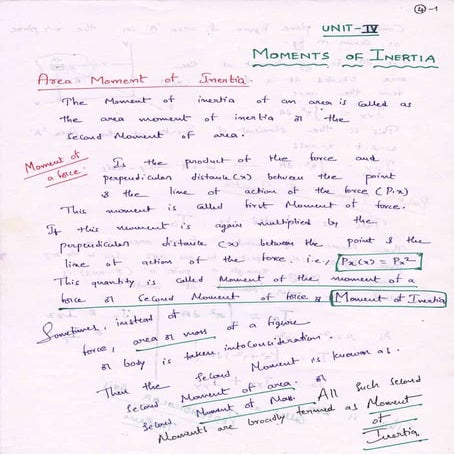 ④-1
UNIT-IV
MOMENTS OF INERTIA
Area Moment of Inertia.
The Moment of inertia of an area is called as
the area moment of inertia or the
Second Moment of area.
Moment of
a force:
Is the product of the force and
perpendicular distance (x) between the point
& the line of action of the force (P.x)
This moment is called first Moment of force.
If this moment is again multiplied by the
perpendicular distance (x) between the point & the
line of action of the force i.e., Px(x) = Px²
This quantity is called Moment of the moment of a
force or Second Moment of force & Moment of Inertia
Sometimes, instead of
force, area or mass of a figure
or body is taken into consideration.
Then the Second Moment is known as.
Second Moment of area. or
Second Moment of Mass. All such second
Moments are broadly termed as Moment
of
Inertia